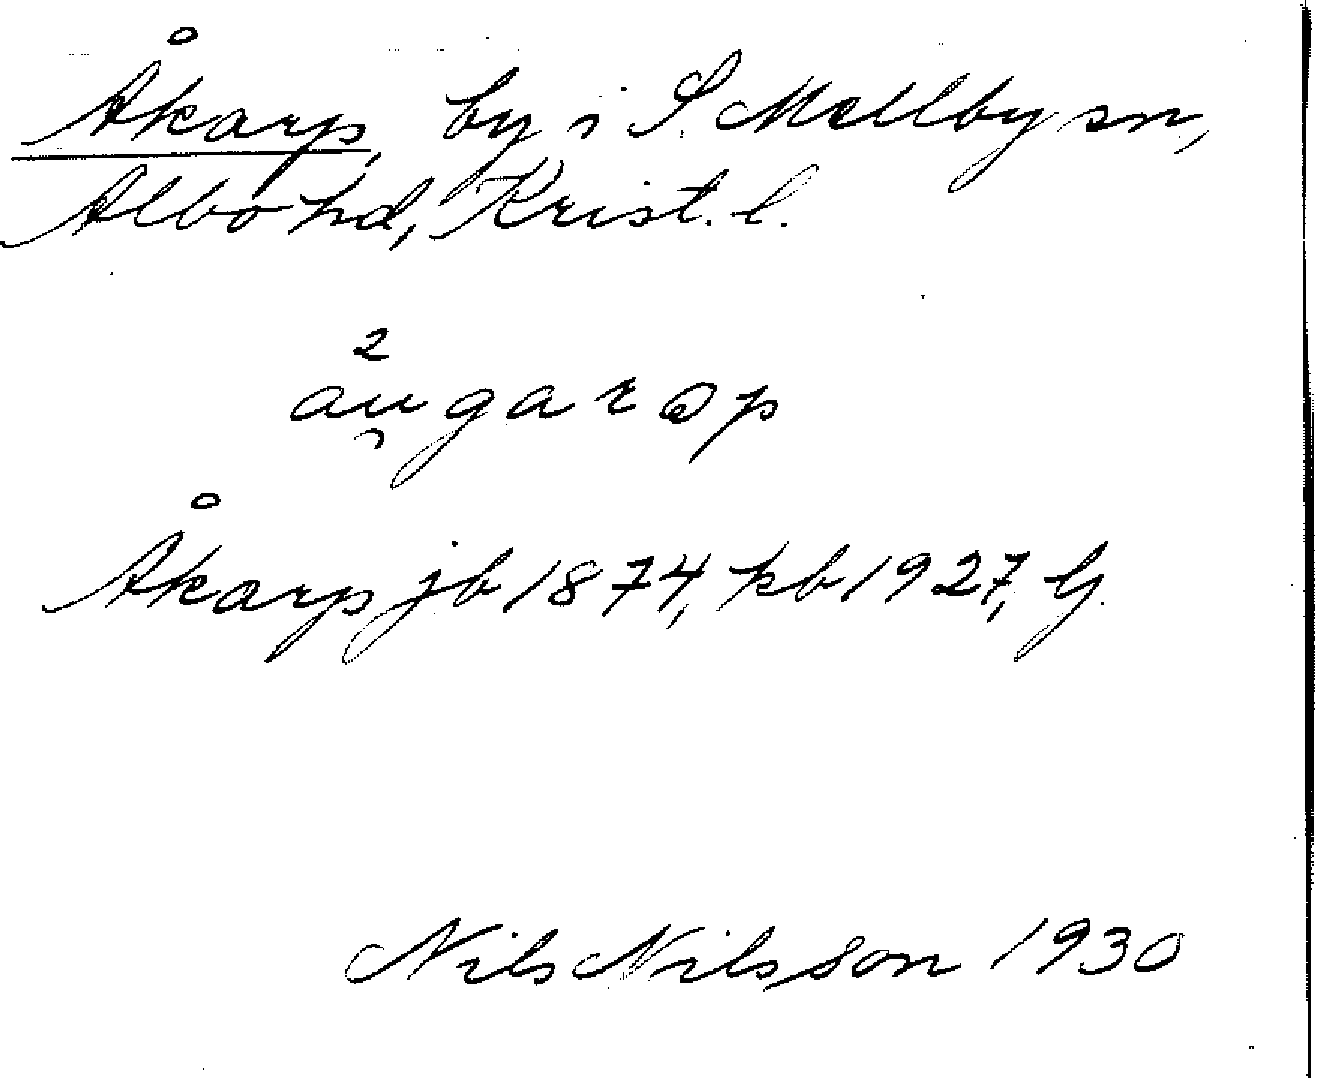 Åkarp, by i S. Mellby sn,
Albo hd, Krist. l.
Åkarp jb 1874, kb 1927, G.
Nils Nilsson 1930